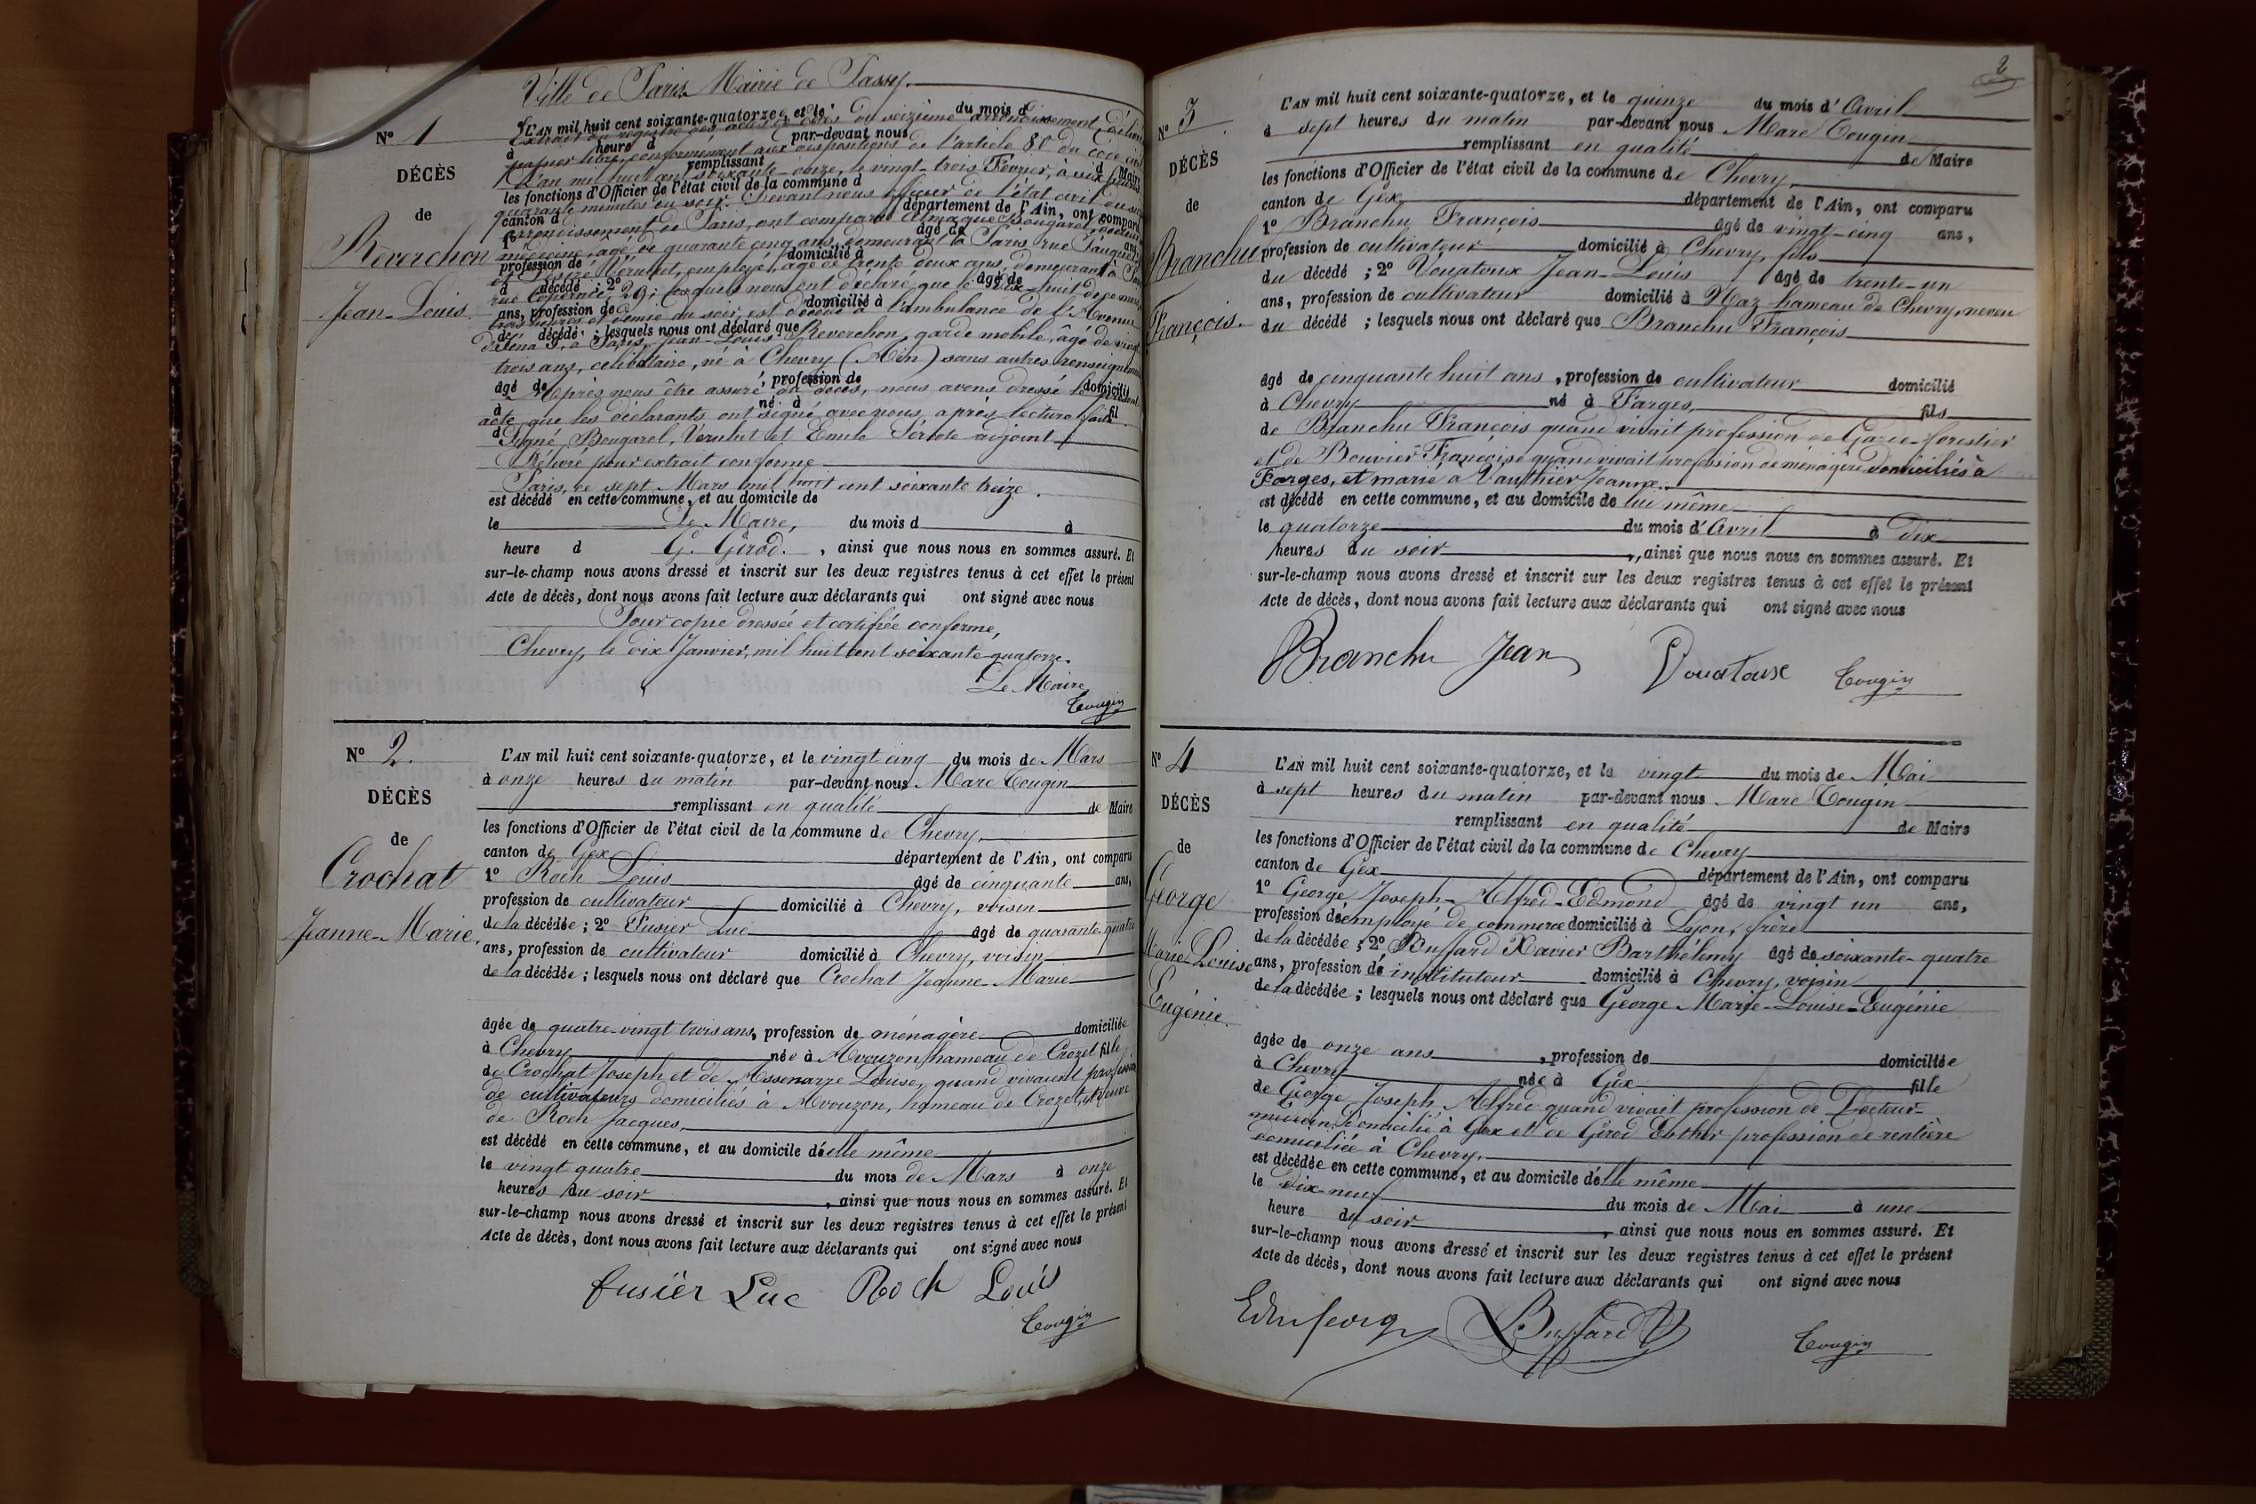 Ville de Paris Mairie de Passy.
N° 1
DÉCÈS
de
Reverchon
Jean-Louis.
L'AN mil huit cent soixante-quatorze, et le du mois d
Extrait du registre des actes de décès du seizième arrondissement
à heure d par-devant nous
conformément aux dispositions de l'article 80 du code civil
remplissant d Maire
L'an mil huit cent soixante-onze, le vingt-trois Février, à six heures
les fonctions d'Officier de l'état civil de la commune d
quarante minutes du soir. Devant nous officier de l'état civil du
canton d département de l'Ain, ont comparu
arrondissement de Paris, ont comparu
1° âgé de ans,
médecine, âgé de quarante cinq ans, demeurant à Paris, rue
profession de domicilié à
employé, âgé de trente deux ans, demeurant à
d décédé ; 2° âgé de
rue Copernic, 29; lesquels nous ont déclaré que le dix-huit
ans, profession de domicilié à
trois heures et demie du soir, est décédé à l'ambulance de l'Avenue
du décédé ; lesquels nous ont déclaré que
d'Iéna 5, à Paris, Jean-Louis Reverchon, garde mobile, âgé de vingt
trois ans, célibataire, né à Chevry (Ain) sans autres renseignements
âgé de , profession de domicilié
Après nous être assuré du décès, nous avons dressé le présent
à né à fil
acte que les déclarants ont signé avec nous, après lecture faite
d
Signé Bougarel, et Emile adjoint
Délivré pour extrait conforme
Paris, ce sept Mars mil huit cent soixante treize.
est décédé en cette commune, et au domicile de
le Le Maire, du mois d à
heure d G. Girod. , ainsi que nous nous en sommes assuré. Et
sur-le-champ nous avons dressé et inscrit sur les deux registres tenus à cet effet le présent
Acte de décès, dont nous avons fait lecture aux déclarants qui ont signé avec nous
Pour copie dressée et certifiée conforme,
Chevry, le dix Janvier, mil huit cent soixante-quatorze.
Le Maire
Tougin
N° 2.
DÉCÈS
de
Crochat
Jeanne-Marie.
L'AN mil huit cent soixante-quatorze, et le vingt cinq du mois de Mars
à onze heures du matin par-devant nous Marc Tougin
remplissant en qualité de Maire
les fonctions d'Officier de l'état civil de la commune de Chevry,
canton de Gex département de l'Ain, ont comparu
1° Roch Louis âgé de cinquante ans,
profession de cultivateur domicilié à Chevry, voisin
de la décédée ; 2° Fusier Luc âgé de quarante-quatre
ans, profession de cultivateur domicilié à Chevry, voisin
de la décédée ; lesquels nous ont déclaré que Crochat Jeanne-Marie
âgée de quatre-vingt trois ans, profession de ménagère domiciliée
à Chevry née à Avouzon, hameau de Crozet fille
de Crochat Joseph et de Louise, quand vivaient profession
de cultivateurs domiciliés à Avouzon, hameau de Crozet, et veuve
de Roch Jacques,
est décédé en cette commune, et au domicile d'elle même
le vingt quatre du mois de Mars à onze
heures du soir , ainsi que nous nous en sommes assuré. Et
sur-le-champ nous avons dressé et inscrit sur les deux registres tenus à cet effet le présent
Acte de décès, dont nous avons fait lecture aux déclarants qui ont signé avec nous
fusier Luc Roch Louis
Tougin
2
N° 3
DÉCÈS
de
Branchu
François.
L'AN mil huit cent soixante-quatorze, et le quinze du mois d'Avril
à sept heures du matin par-devant nous Marc Tougin
remplissant en qualité de Maire
les fonctions d'Officier de l'état civil de la commune de Chevry,
canton de Gex département de l'Ain, ont comparu
1° Branchu François âgé de vingt-cinq ans,
profession de cultivateur domicilié à Chevry, fils
du décédé ; 2° Vouatoux Jean-Louis âgé de trente-un
ans, profession de cultivateur domicilié à Naz hameau de Chevry, neveu
du décédé ; lesquels nous ont déclaré que Branchu François
âgé de cinquante huit ans, profession de cultivateur domicilié
à Chevry né à Farges, fils
de Branchu François quand vivait profession de Garde-forestier
et de Bouvier Françoise quand vivait profession de ménagère domiciliés à
Farges, et marié à Vauthier Jeanne.
est décédé en cette commune, et au domicile de lui même
le quatorze du mois d'Avril à dix
heures du soir , ainsi que nous nous en sommes assuré. Et
sur-le-champ nous avons dressé et inscrit sur les deux registres tenus à cet effet le présent
Acte de décès, dont nous avons fait lecture aux déclarants qui ont signé avec nous
Branchu Jean Vouatoux Tougin
N° 4
DÉCÈS
de
George
Marie-Louise
Eugénie.
L'AN mil huit cent soixante-quatorze, et le vingt du mois de Mai
à sept heures du matin par-devant nous Marc Tougin
remplissant en qualité de Maire
les fonctions d'Officier de l'état civil de la commune de Chevry
canton de Gex département de l'Ain, ont comparu
1° George Joseph-Alfred-Edmond âgé de vingt un ans,
profession d'employé de commerce domicilié à Lyon, frère
de la décédée ; 2° Buffard Xavier Barthélemy âgé de soixante-quatre
ans, profession d'instituteur domicilié à Chevry, voisin
de la décédée ; lesquels nous ont déclaré que George Marie-Louise-Eugénie
âgée de onze ans , profession de domiciliée
à Chevry née à Gex fille
de George Joseph Alfred quand vivait profession de Docteur-
médecin domicilié à Gex et de Girod Esther profession de rentière
domiciliée à Chevry.
est décédée en cette commune, et au domicile d'elle même
le dix-neuf du mois de Mai à une
heure du soir , ainsi que nous nous en sommes assuré. Et
sur-le-champ nous avons dressé et inscrit sur les deux registres tenus à cet effet le présent
Acte de décès, dont nous avons fait lecture aux déclarants qui ont signé avec nous
Buffard Tougin